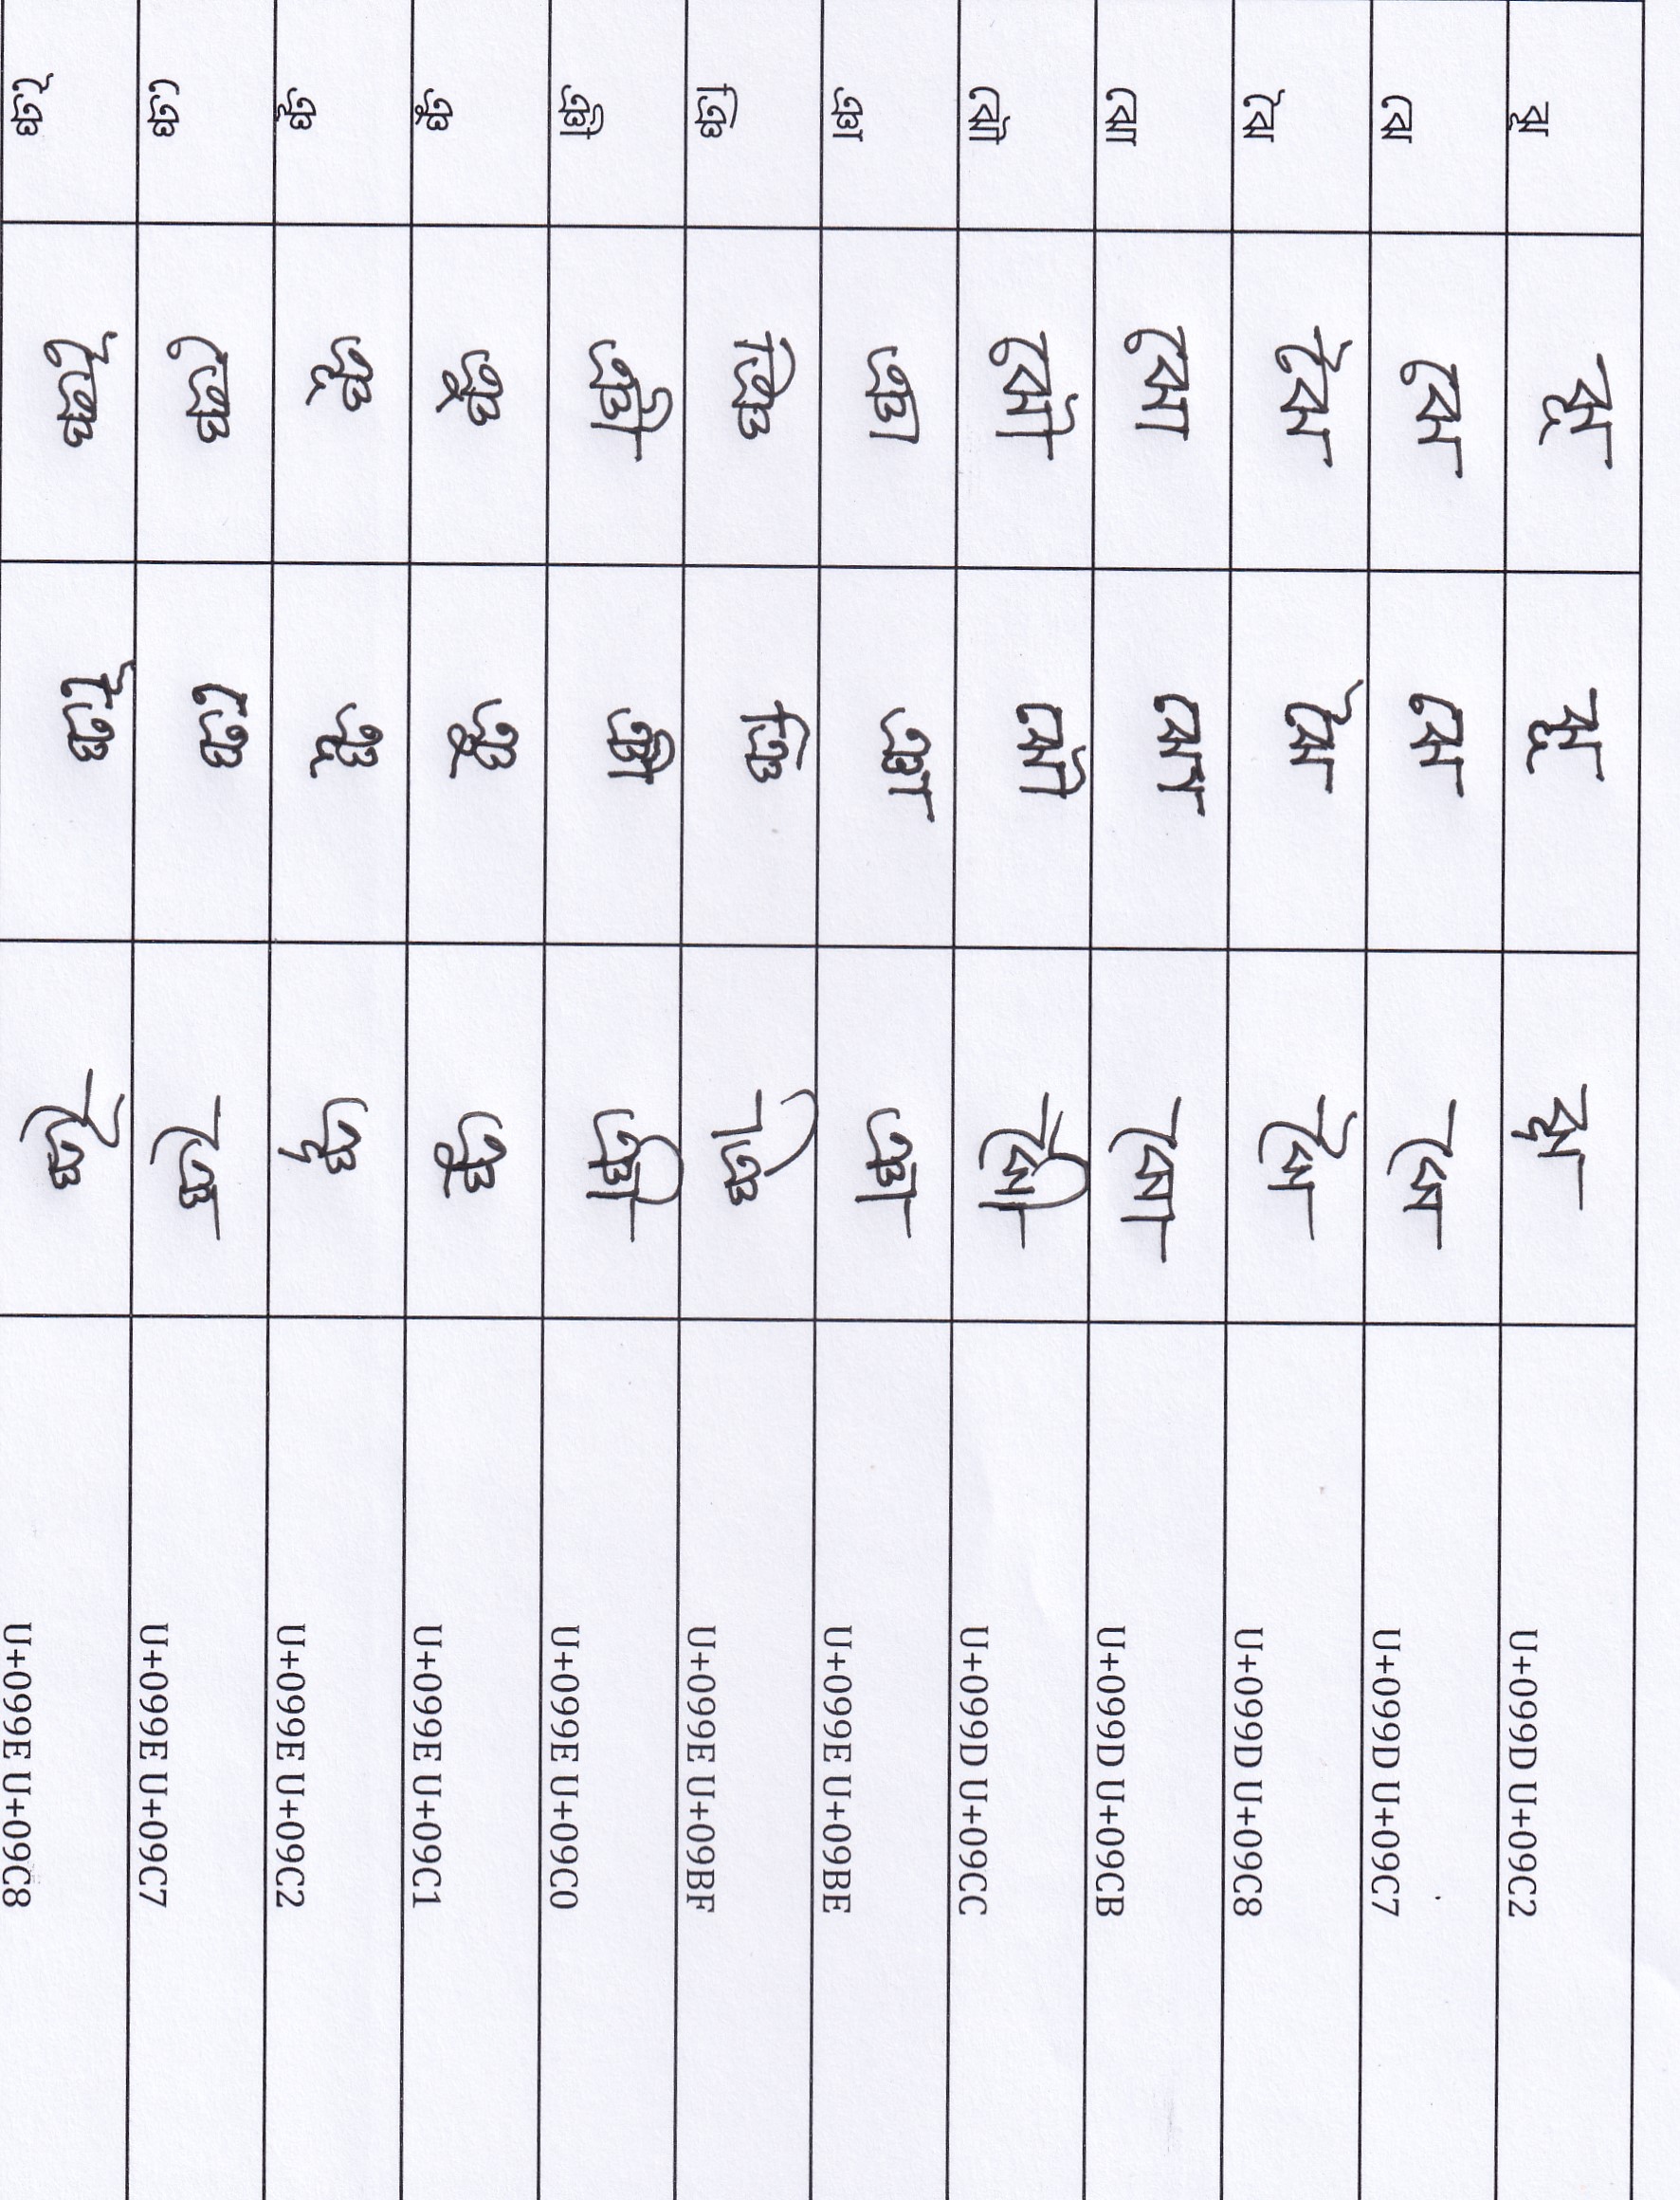 ঝূ ঝূ ঝূ ঝূ U+099D U+09C2
ঝে ঝে ঝে ঝে U+099D U+09C7
ঝৈ ঝৈ ঝৈ ঝৈ U+099D U+09C8
ঝো ঝো ঝো ঝো U+099D U+09CB
ঝৌ ঝৌ ঝৌ ঝৌ U+099D U+09CC
ঞা ঞা ঞা ঞা U+099E U+09BE
ঞি ঞি ঞি ঞি U+099E U+09BF
ঞী ঞী ঞী ঞী U+099E U+09C0
ঞু ঞু ঞু ঞু U+099E U+09C1
ঞূ ঞূ ঞূ ঞূ U+099E U+09C2
ঞে ঞে ঞে ঞে U+099E U+09C7
ঞৈ ঞৈ ঞৈ ঞৈ U+099E U+09C8